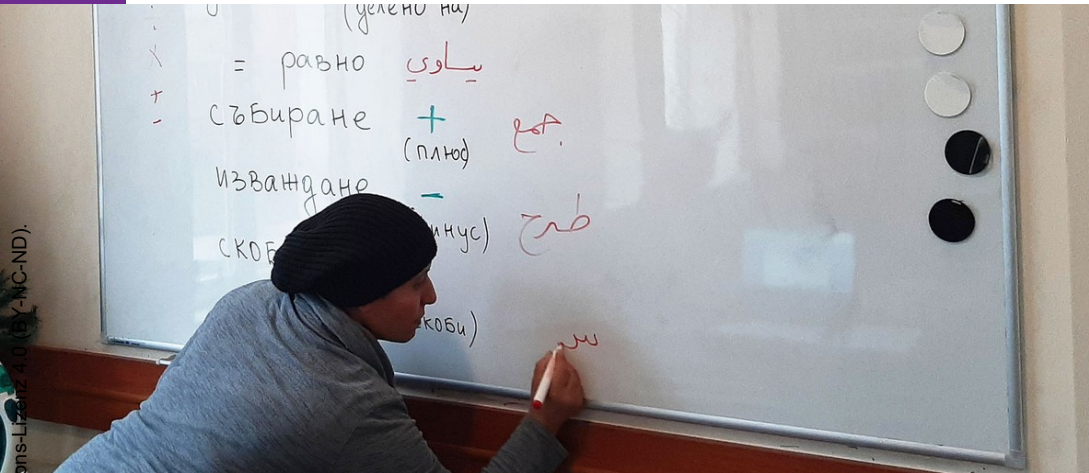 (делено на)
= равно يساوي
събиране + جمع
(плюс)
изваждане - طرح
инус)
скоб
коби)
ons-Lizenz 4.0 (BY-NC-ND).